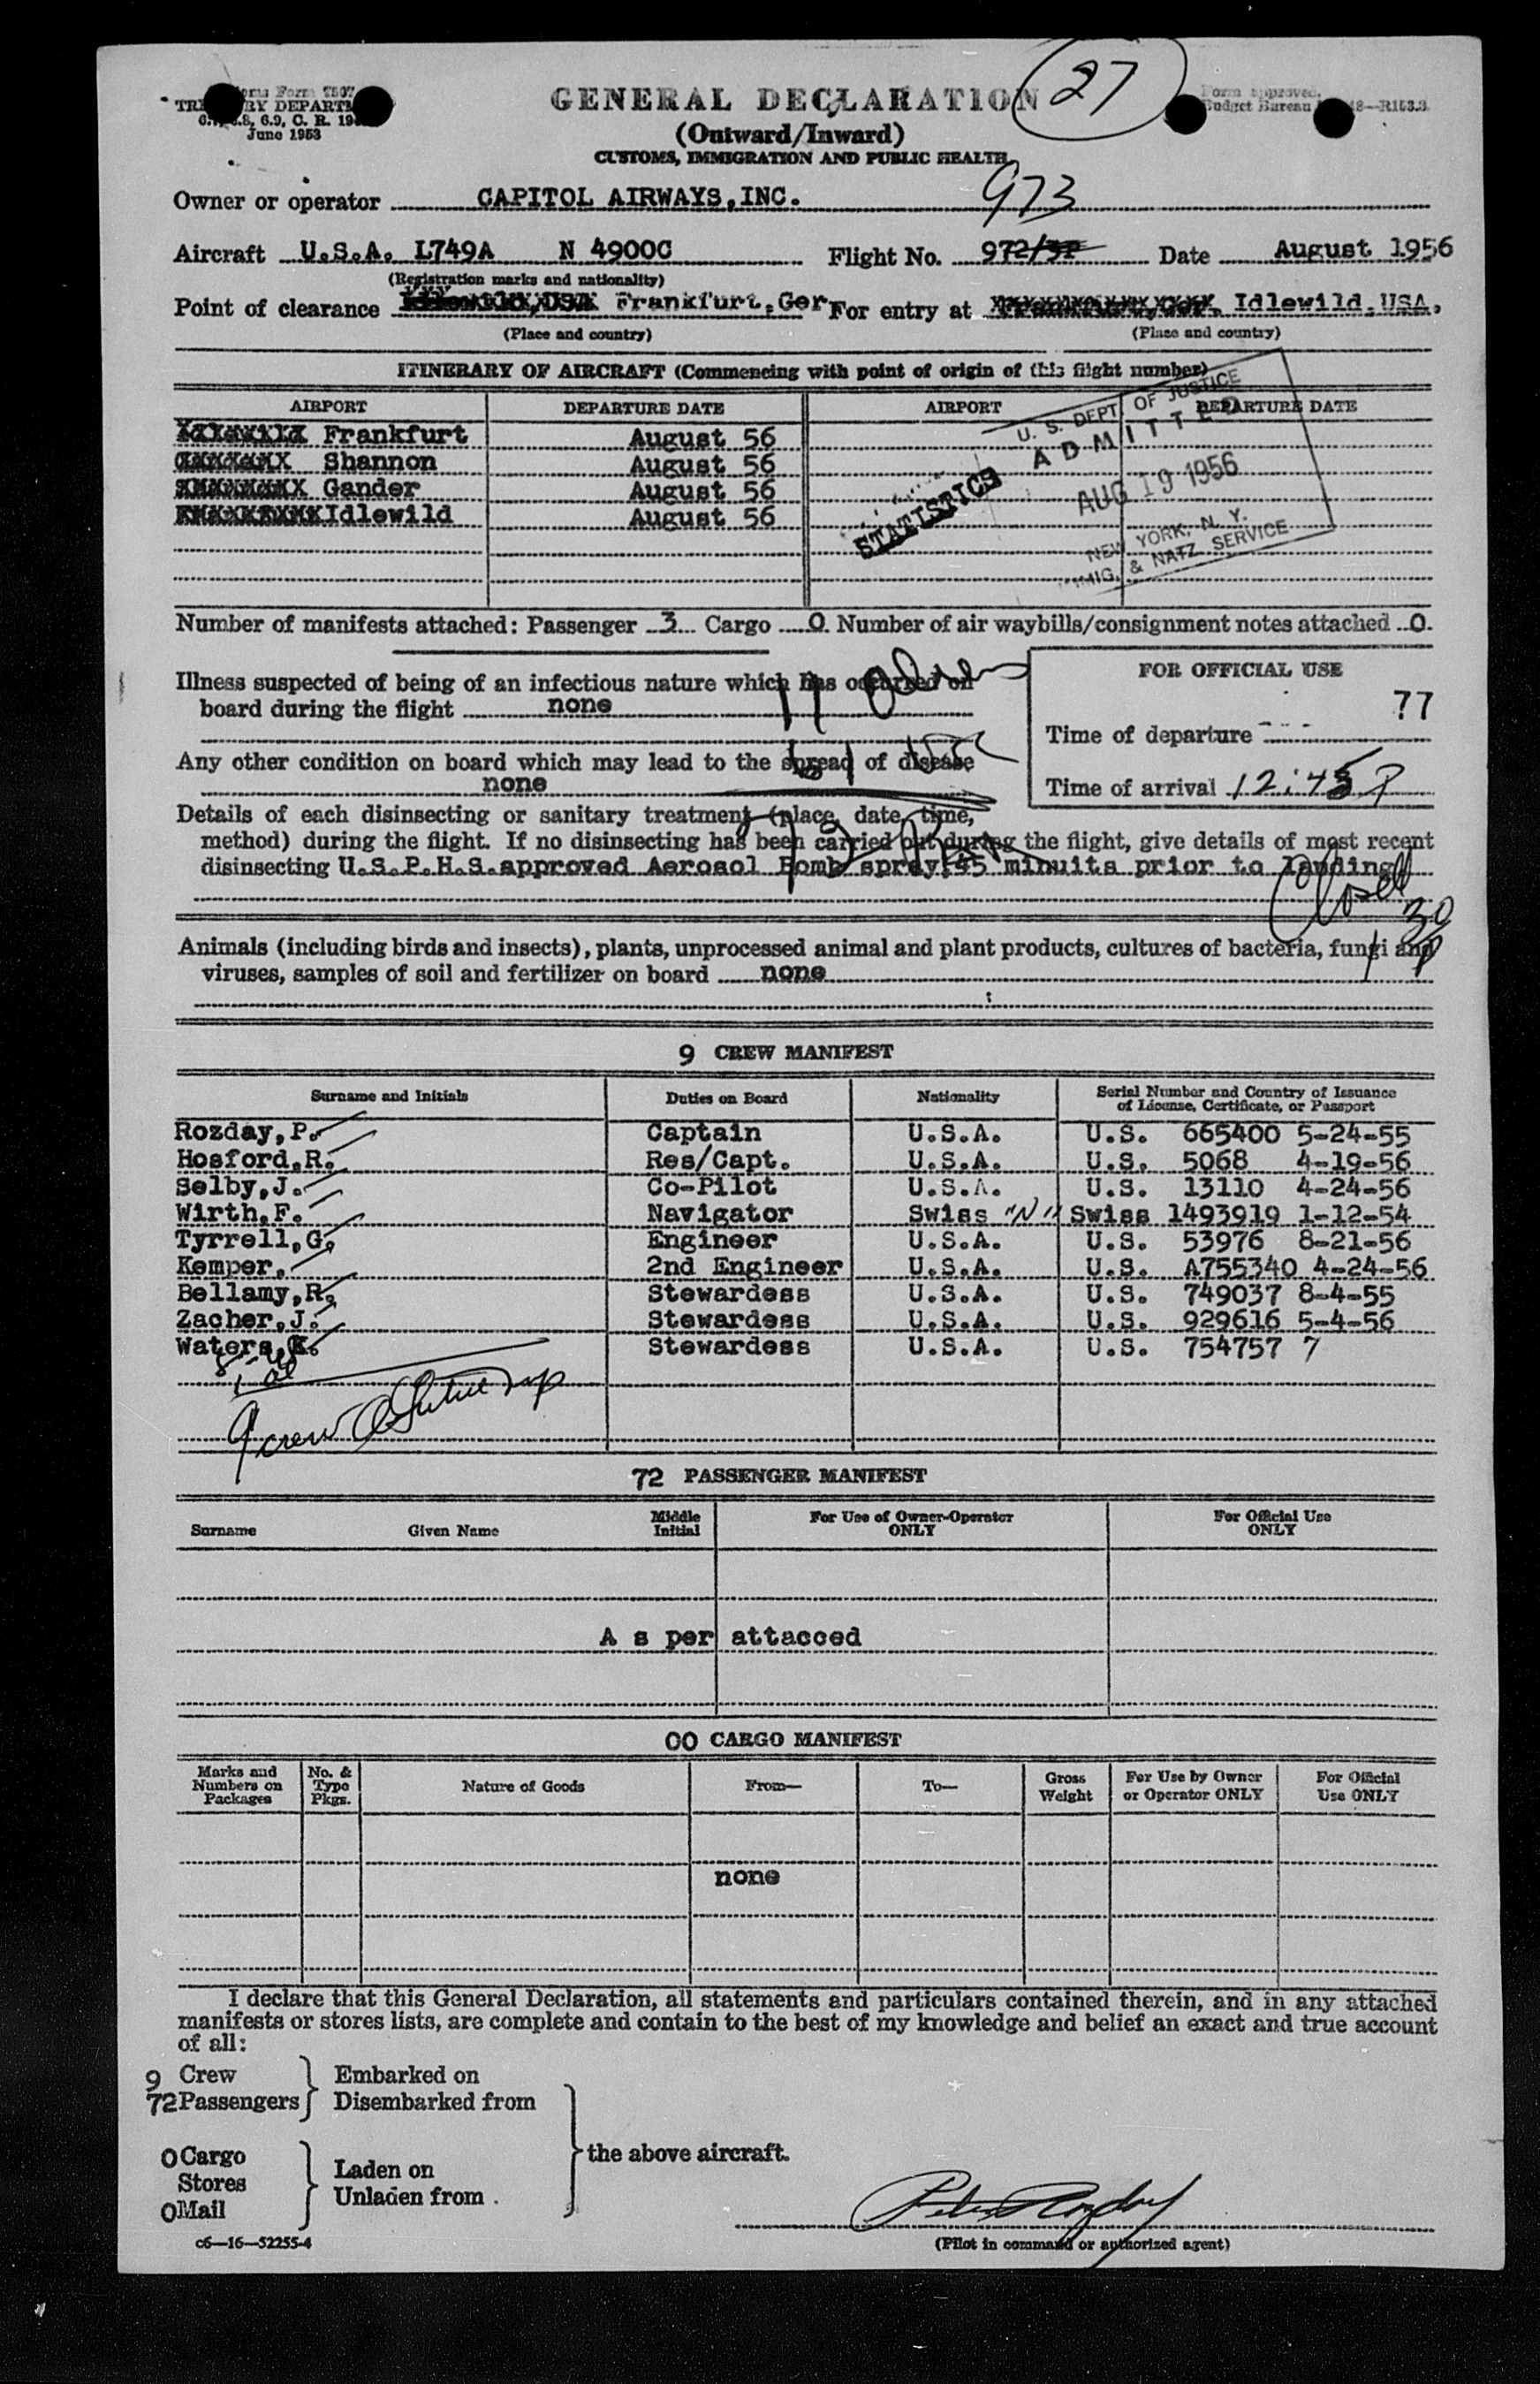 27
June 1953
GENERAL DECLARATION
(Outward/Inward)
CUSTOMS, IMMIGRATION AND PUBLIC HEALTH
Form approved.
Budget Bureau
Owner or operator CAPITOL AIRWAYS,INC. 973
Aircraft U.S.A. L749A N 4900C Flight No. 972/ Date August 1956
(Registration marks and nationality)
Point of clearance Frankfurt,Ger For entry at Idlewild,USA,
(Place and country) (Place and country)
ITINERARY OF AIRCRAFT (Commencing with point of origin of this flight number)
AIRPORT DEPARTURE DATE AIRPORT DEPARTURE DATE
Frankfurt August 56
Shannon August 56
Gander August 56
Idlewild August 56
STATISTICS
U. S. DEPT. OF JUSTICE
ADMITTED
AUG 19 1956
NEW YORK, N. Y.
IMMIG. & NATZ SERVICE
Number of manifests attached: Passenger 3 Cargo 0 Number of air waybills/consignment notes attached 0.
FOR OFFICIAL USE
77
Time of departure
Time of arrival 12:45 P
Illness suspected of being of an infectious nature which has occurred on
board during the flight none
Any other condition on board which may lead to the spread of disease
none
Details of each disinsecting or sanitary treatment (place, date, time,
method) during the flight. If no disinsecting has been carried out during the flight, give details of most recent
disinsecting U.S.P.H.S.approved Aerosol Bomb spray,45 minuits prior to landing
Animals (including birds and insects), plants, unprocessed animal and plant products, cultures of bacteria, fungi and
viruses, samples of soil and fertilizer on board none
9 CREW MANIFEST
Surname and Initials Duties on Board Nationality Serial Number and Country of Issuance
of License, Certificate, or Passport
Rozday,P. Captain U.S.A. U.S. 665400 5-24-55
Hosford,R. Res/Capt. U.S.A. U.S. 5068 4-19-56
Selby,J. Co-Pilot U.S.A. U.S. 13110 4-24-56
Wirth,F. Navigator Swiss "N" Swiss 1493919 1-12-54
Tyrrell,G. Engineer U.S.A. U.S. 53976 8-21-56
Kemper. 2nd Engineer U.S.A. U.S. A755340 4-24-56
Bellamy,R. Stewardess U.S.A. U.S. 749037 8-4-55
Zacher,J. Stewardess U.S.A. U.S. 929616 5-4-56
Waters,K. Stewardess U.S.A. U.S. 754757 7
9 crew
72 PASSENGER MANIFEST
Surname Given Name Middle Initial For Use of Owner-Operator ONLY For Official Use ONLY
A s per attacced
00 CARGO MANIFEST
Marks and Numbers on Packages No. & Type Pkgs. Nature of Goods From— To— Gross Weight For Use by Owner or Operator ONLY For Official Use ONLY
none
I declare that this General Declaration, all statements and particulars contained therein, and in any attached
manifests or stores lists, are complete and contain to the best of my knowledge and belief an exact and true account
of all:
9 Crew Embarked on
72 Passengers Disembarked from
the above aircraft.
0 Cargo
Stores Laden on
0 Mail Unladen from
Peter Rozday
c6—16—52255-4 (Pilot in command or authorized agent)